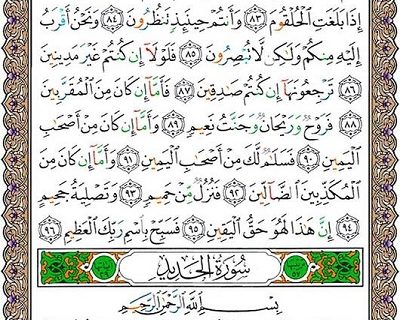 إِذَا بَلَغَتِ الْحُلْقُومَ ٨٣ وَأَنتُمْ حِينَئِذٍ تَنظُرُونَ ٨٤ وَنَحْنُ أَقْرَبُ
إِلَيْهِ مِنكُمْ وَلَٰكِن لَّا تُبْصِرُونَ ٨٥ فَلَوْلَا إِن كُنتُمْ غَيْرَ مَدِينِينَ
٨٦ تَرْجِعُونَهَا إِن كُنتُمْ صَادِقِينَ ٨٧ فَأَمَّا إِن كَانَ مِنَ الْمُقَرَّبِينَ
٨٨ فَرَوْحٌ وَرَيْحَانٌ وَجَنَّتُ نَعِيمٍ ٨٩ وَأَمَّا إِن كَانَ مِنْ أَصْحَابِ
الْيَمِينِ ٩٠ فَسَلَامٌ لَّكَ مِنْ أَصْحَابِ الْيَمِينِ ٩١ وَأَمَّا إِن كَانَ مِنَ
الْمُكَذِّبِينَ الضَّالِّينَ ٩٢ فَنُزُلٌ مِّنْ حَمِيمٍ ٩٣ وَتَصْلِيَةُ جَحِيمٍ
٩٤ إِنَّ هَٰذَا لَهُوَ حَقُّ الْيَقِينِ ٩٥ فَسَبِّحْ بِاسْمِ رَبِّكَ الْعَظِيمِ ٩٦
سُورَةُ الْحَدِيدِ
بِسْمِ اللَّهِ الرَّحْمَٰنِ الرَّحِيمِ